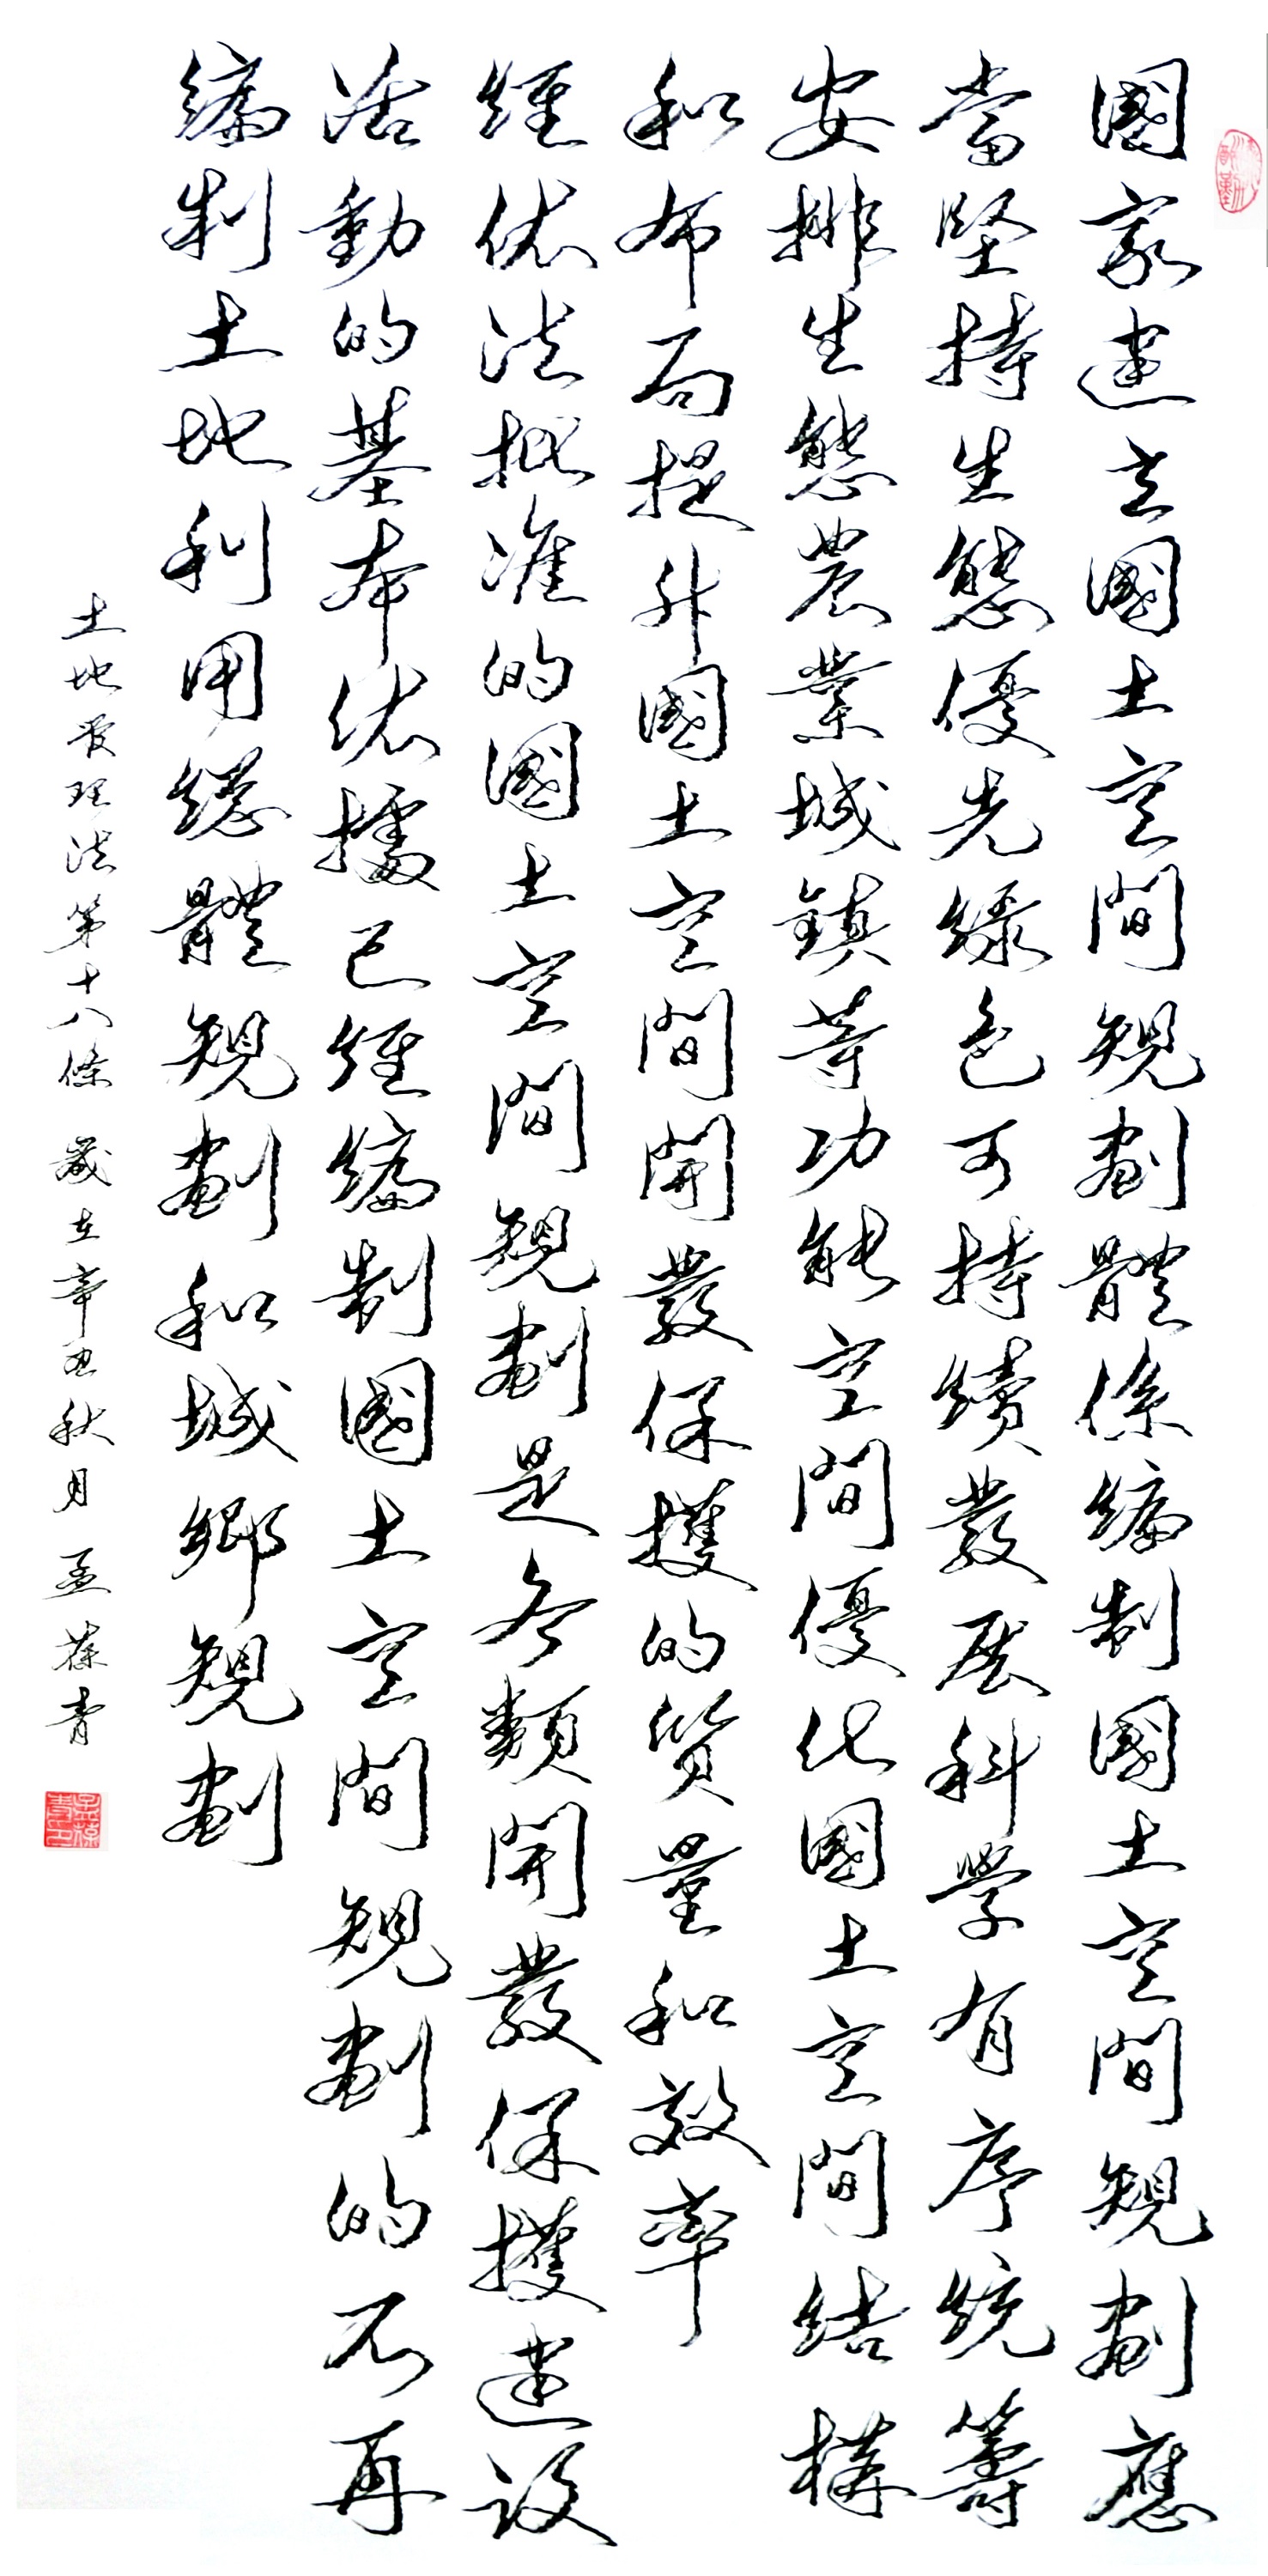 國家建立國土空間規劃體係編制國土空間規劃應
當堅持生態優先綠色可持續發展科學有序統籌
安排生態農業城鎮等功能空間優化國土空間結構
和布局提升國土空間開發保護的質量和效率
經依法批准的國土空間規劃是各類開發保護建設
活動的基本依據已經編制國土空間規劃的不再
編制土地利用總體規劃和城鄉規劃
土地管理法第十八條 歲在辛丑秋月 孟葆青